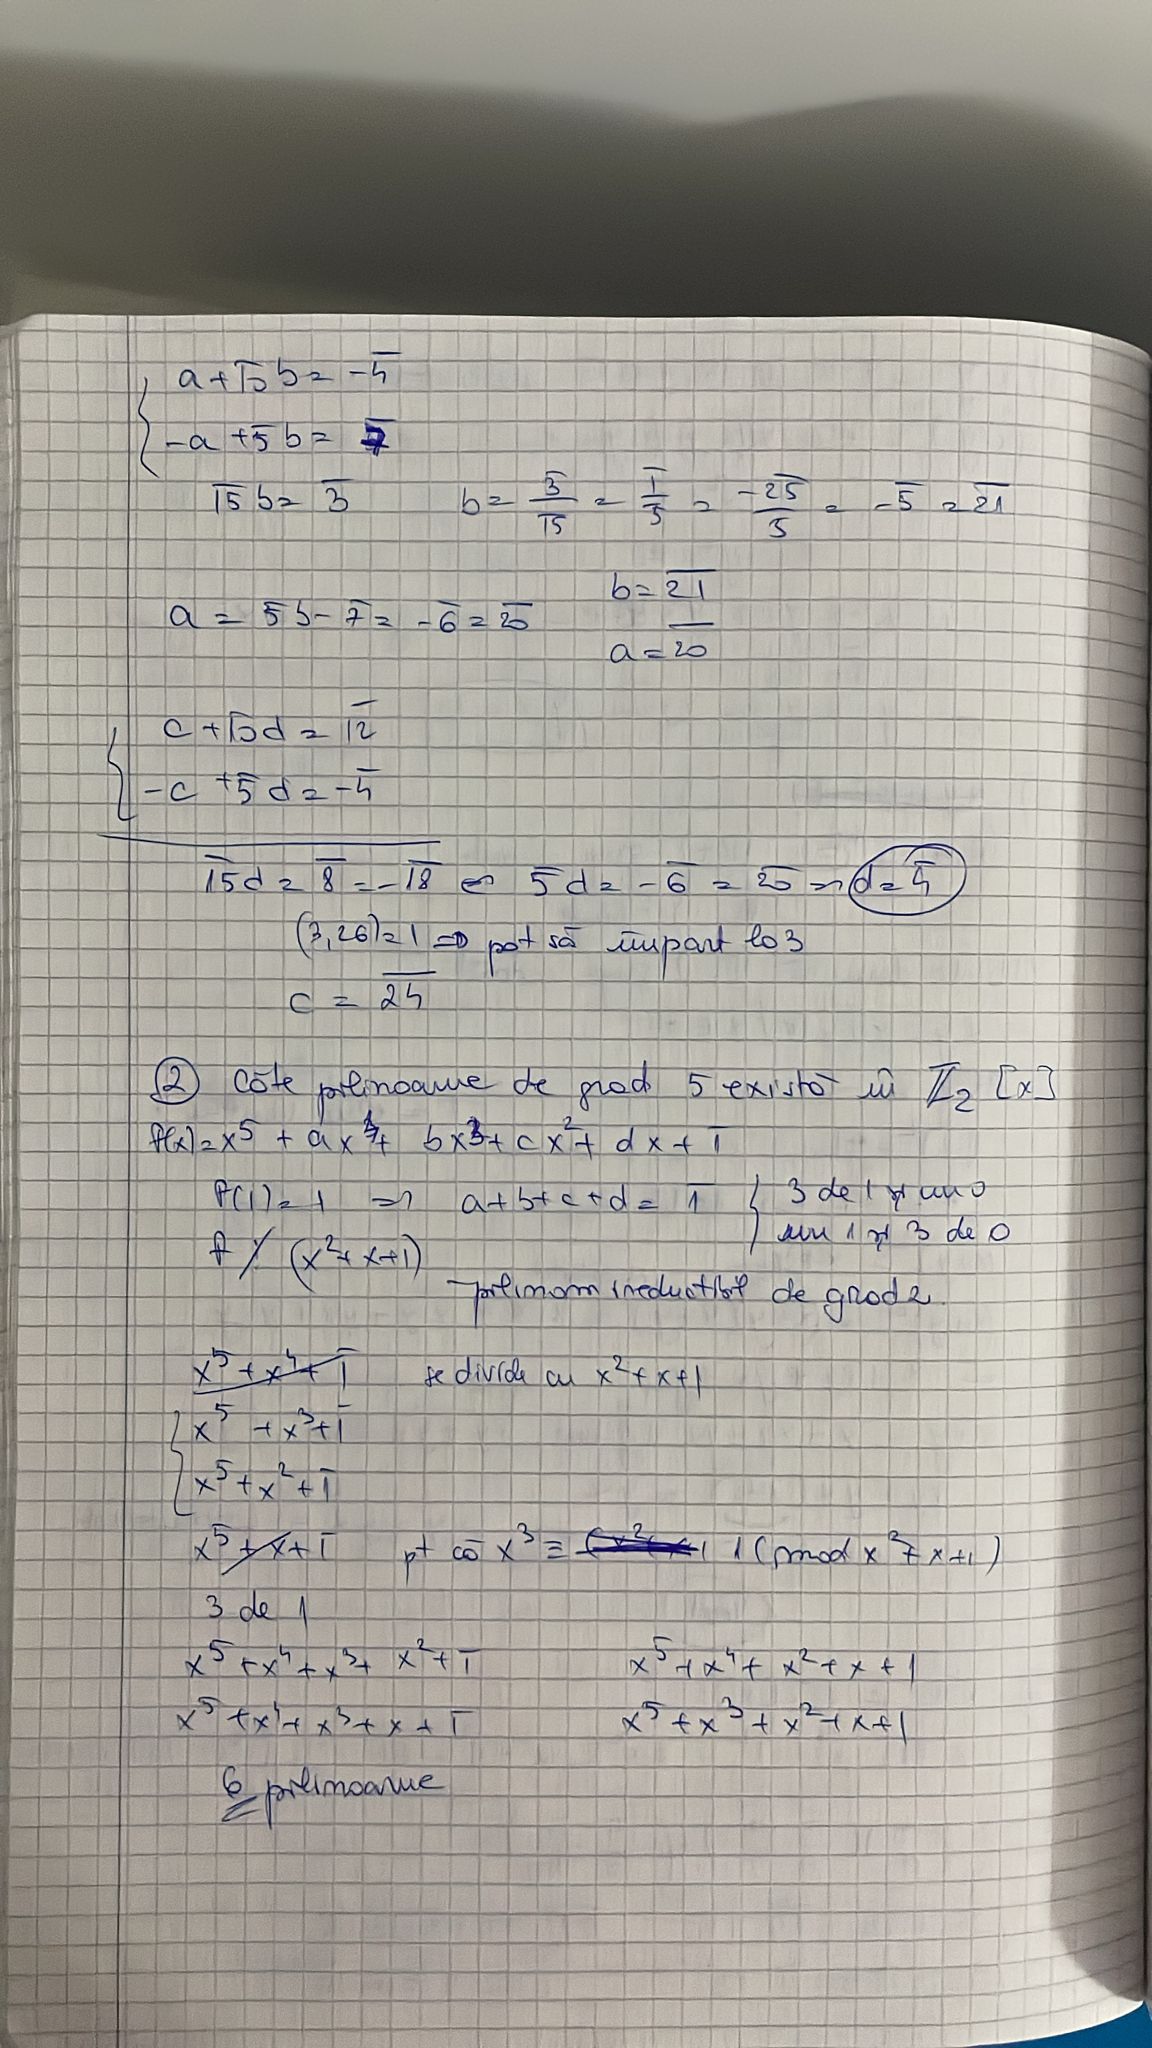 a + 10 b = -4̅
-a + 5̅ b = 7̅
1̅5̅ b = 3̅   b = 3̅/1̅5̅ = 1̅/5̅ = -2̅5̅/5 = -5̅ = 2̅1̅
a = 5̅b - 7̅ = -6̅ = 2̅0̅   b = 2̅1̅
a = 2̅0̅
c + 10d = 1̅2̅
-c + 5̅ d = -4̅
1̅5̅d = 8̅ = -1̅8̅ ⇔ 5̅d = -6̅ = 2̅0̅ ⇒ d = 4̅
(3,26)=1 ⇒ pot să împart la 3
c = 2̅4̅
② Câte polinoame de grad 5 există în ℤ₂ [x]
f(x) = x⁵ + ax⁴ + bx³ + cx² + dx + 1̅
f(1) = 1 ⇒ a+b+c+d = 1̅   3 de 1 și un 0
un 1 și 3 de 0
f ⋮̸ (x²+x+1)
polinom ireductibil de grad 2
x⁵+x⁴+1̅   se divide cu x²+x+1
x⁵ + x³+1̅
x⁵+x²+1̅
x⁵+x+1̅   pt că x³ ≡ 1 (mod x²+x+1)
3 de 1
x⁵+x⁴+x³+ x²+1̅   x⁵+x⁴+ x²+x+1
x⁵+x⁴+x³+x+1̅   x⁵+x³+x²+x+1
6 polinoame